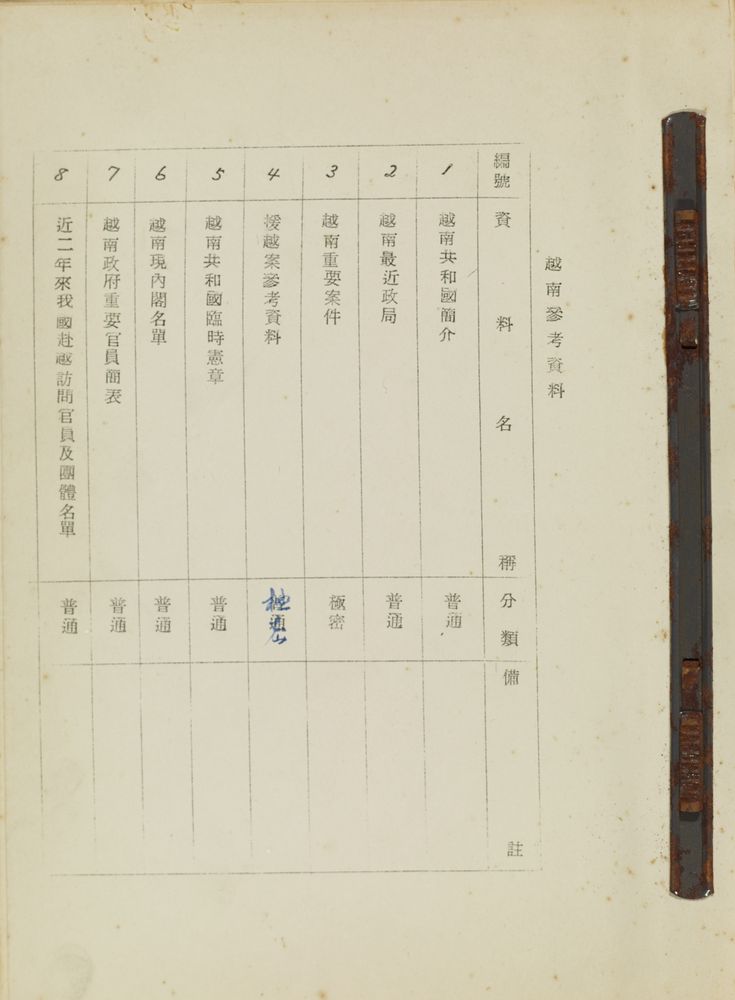 越南參考資料
編號 資料名稱 分類 備註
1 越南共和國簡介 普通
2 越南最近政局 普通
3 越南重要案件 極密
4 援越案參考資料 極密
5 越南共和國臨時憲章 普通
6 越南現內閣名單 普通
7 越南政府重要官員簡表 普通
8 近二年來我國赴越訪問官員及團體名單 普通